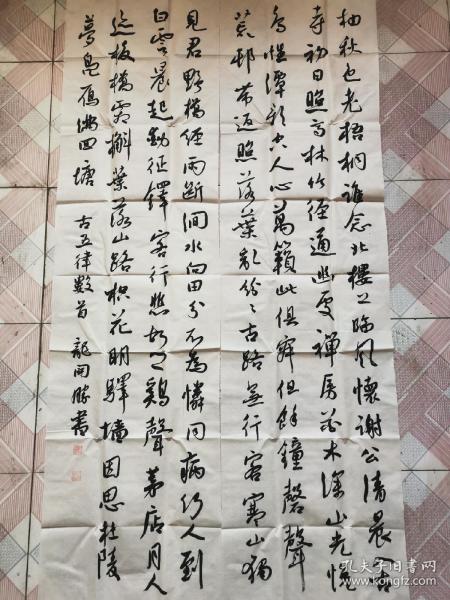 柚秋色老梧桐誰念北樓上臨風懷謝公清晨入古
寺初日照高林竹徑通幽處禪房花木深山光悅
鳥性潭影空人心萬籟此俱寂但餘鐘磬聲
荒邨帶返照落葉亂紛〻古路無行客寒山獨
見君野橋經雨斷澗水向田分不為憐同病何人到
白雲晨起動征鐸客行悲故鄉鷄聲茅店月人
迹板橋霜槲葉落山路枳花明驛墻因思杜陵
夢鳧雁滿回塘 古五律數首 龍開勝書
孔夫子旧书网
kongfz.com